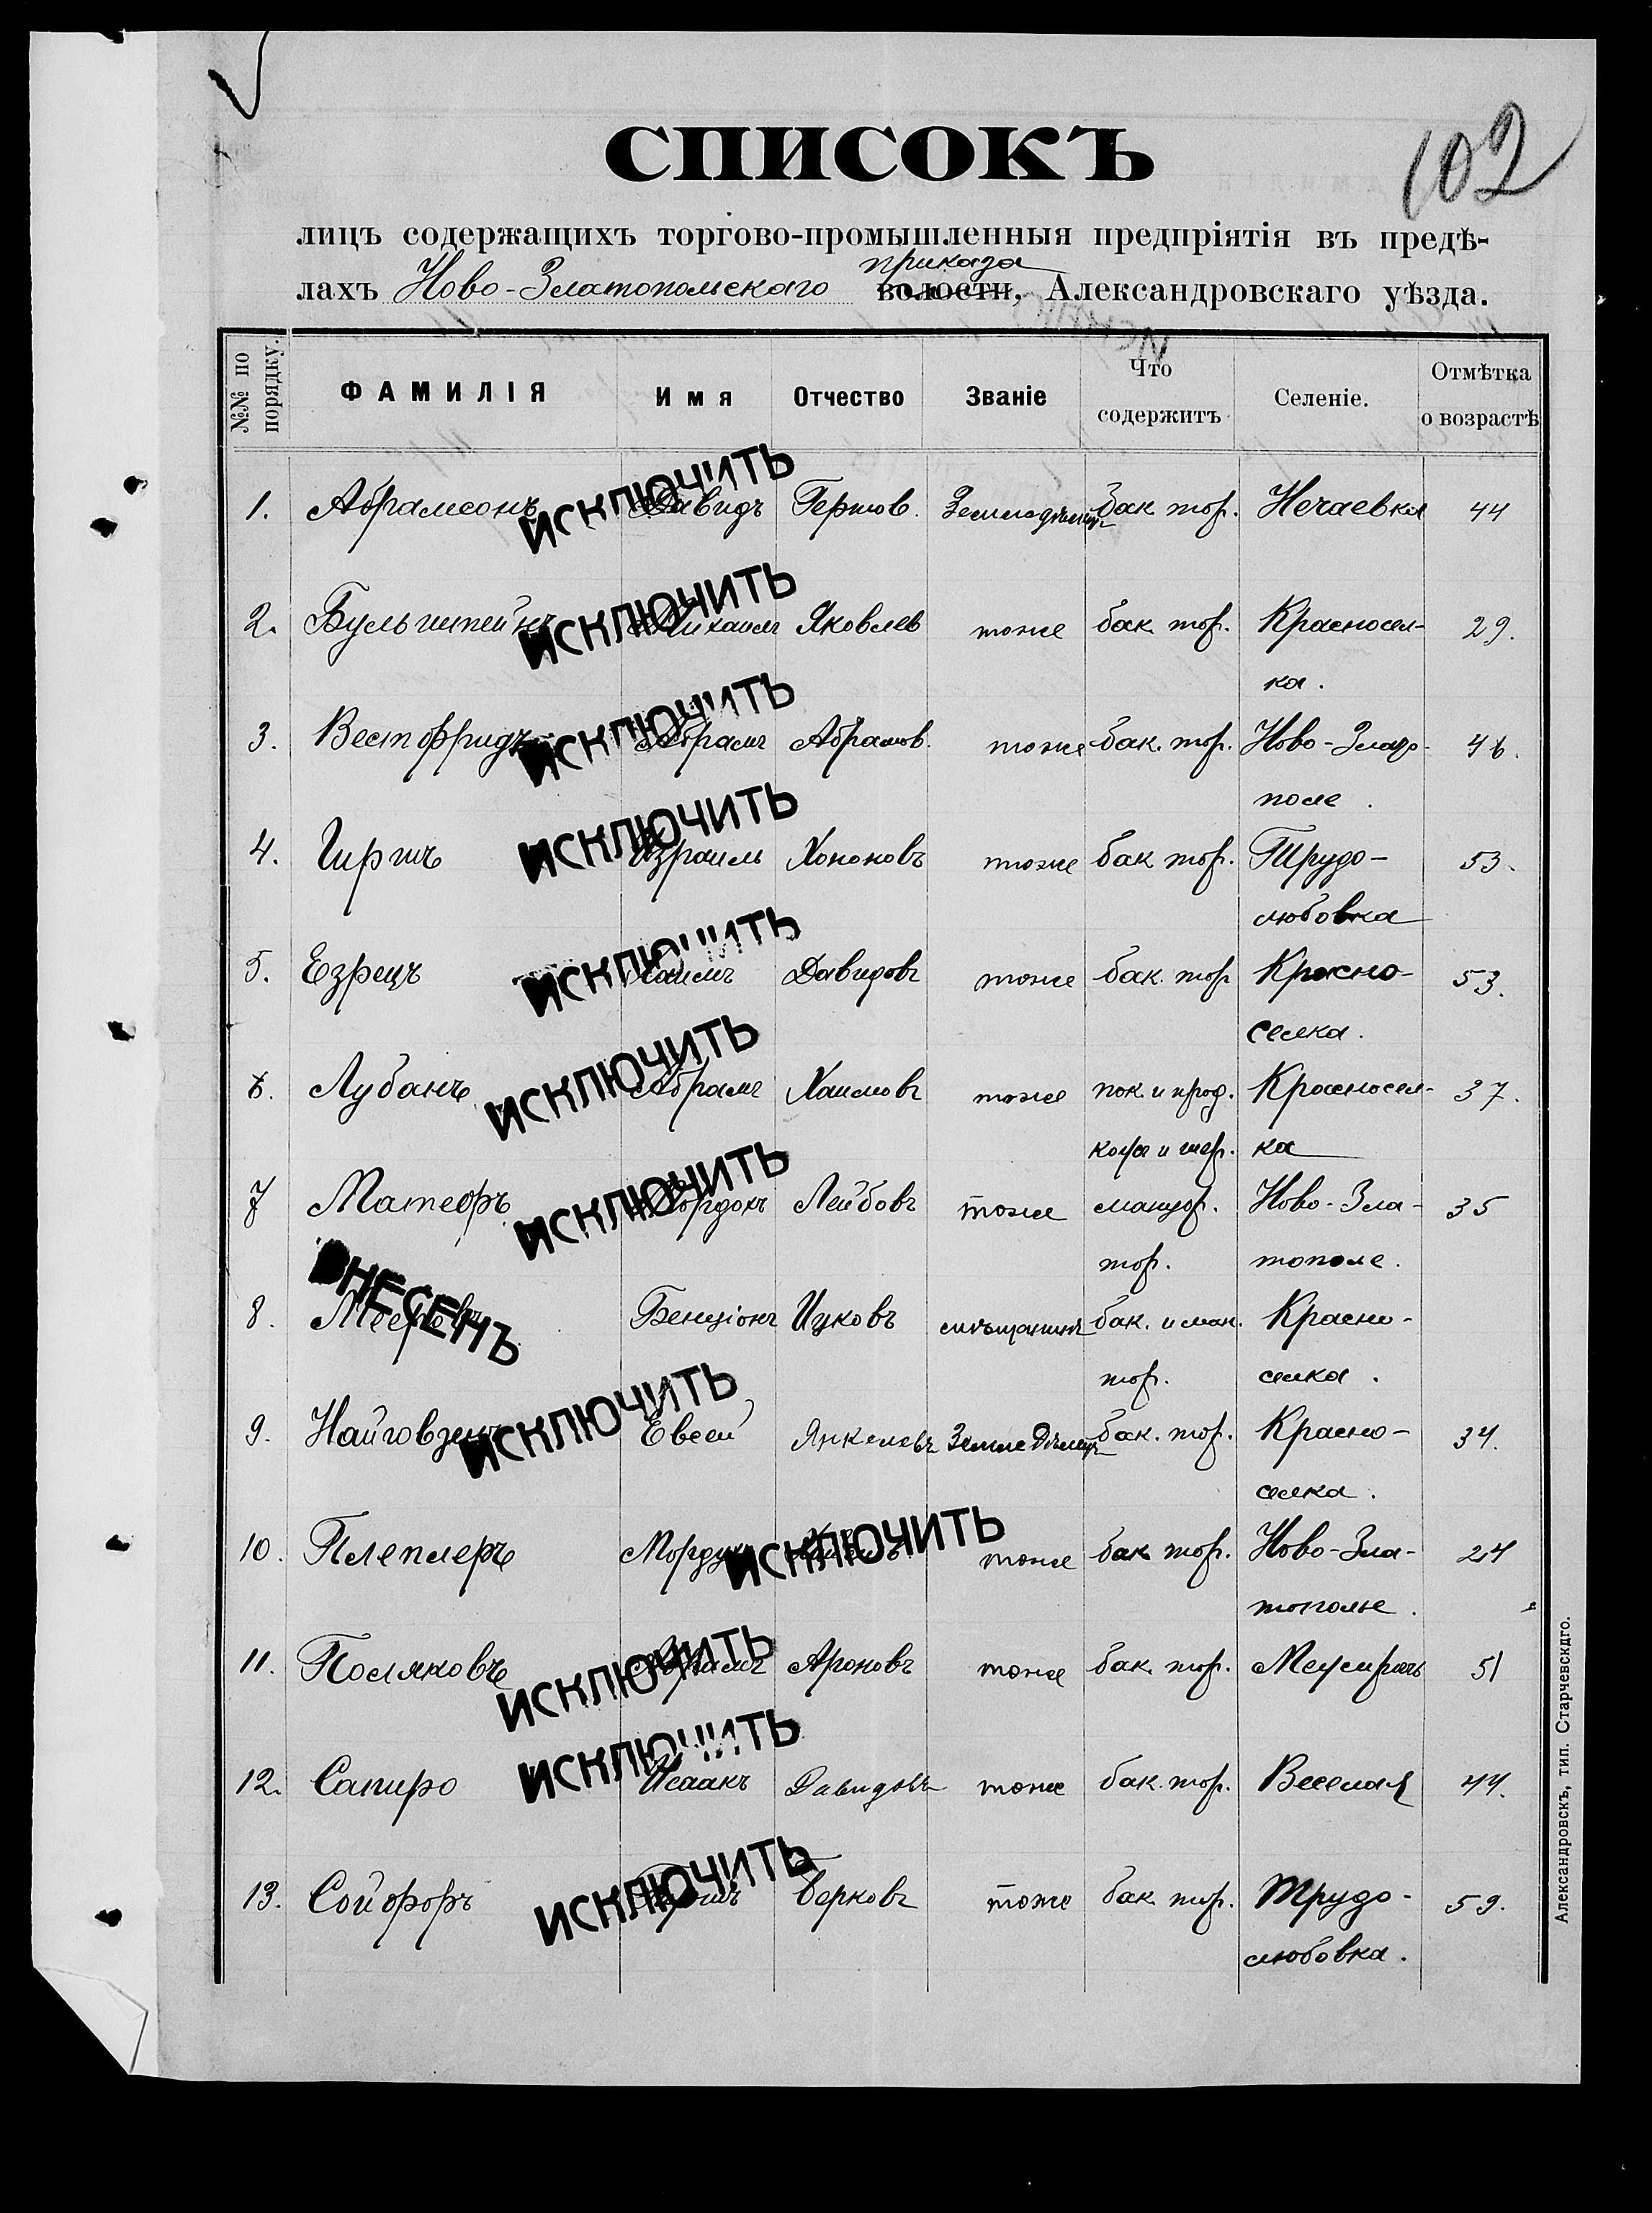 102
СПИСОКЪ
лицъ содержащихъ торгово-промышленныя предпріятія въ предѣ-
приказа
лахъ Ново-Златопольскаго волости, Александровскаго уѣзда.
№№ по порядку. ФАМИЛІЯ Имя Отчество Званіе Что содержитъ Селеніе. Отмѣтка о возрастѣ
ИСКЛЮЧИТЬ
1. Абрамсонъ Давидъ Гершов. Земледѣлецъ бак тор. Нечаевка 44
ИСКЛЮЧИТЬ
2. Бульштейнъ Михаилъ Яковлев тоже бак. тор. Красносел-
ка. 29.
ИСКЛЮЧИТЬ
3. Вестфридъ Абрамъ Абрамов. тоже бак. тор. Ново-Злато-
поле. 46.
ИСКЛЮЧИТЬ
4. Гиршъ Израиль Хононовъ тоже бак тор. Трудо-
любовка 53.
ИСКЛЮЧИТЬ
5. Езрецъ Хаимъ Давидовъ тоже бак. тор Красно-
селка. 53.
ИСКЛЮЧИТЬ
6. Лубанъ Абрамъ Хаимовъ тоже пок. и прод. Красносел- 37.
кожи и шер. ка
ИСКЛЮЧИТЬ
7 Матеоръ Мордохъ Лейбовъ тоже мануф. Ново-Зла- 35
тор. тополе.
ВНЕСЕНЪ
8. Бенціонъ Ицковъ мѣщанинъ бак. и ман. Красно-
тор. селка.
ИСКЛЮЧИТЬ
9. Евсей Янкелевъ Земледѣлецъ бак. тор. Красно- 34.
селка.
ИСКЛЮЧИТЬ
10. Плеплеръ Мордухъ тоже бак тор. Ново-Зла- 24
тополье.
ИСКЛЮЧИТЬ
11. Поляковъ Абрамъ Ароновъ тоже бак. тор. Межиричъ 51
ИСКЛЮЧИТЬ
12. Сапиро Исаакъ Давидовъ тоже бак. тор. Веселая 44.
ИСКЛЮЧИТЬ
13. Сойфоръ Берковъ тоже бак тор. Трудо- 59.
любовка.
Александровскъ, тип. Старчевскаго.